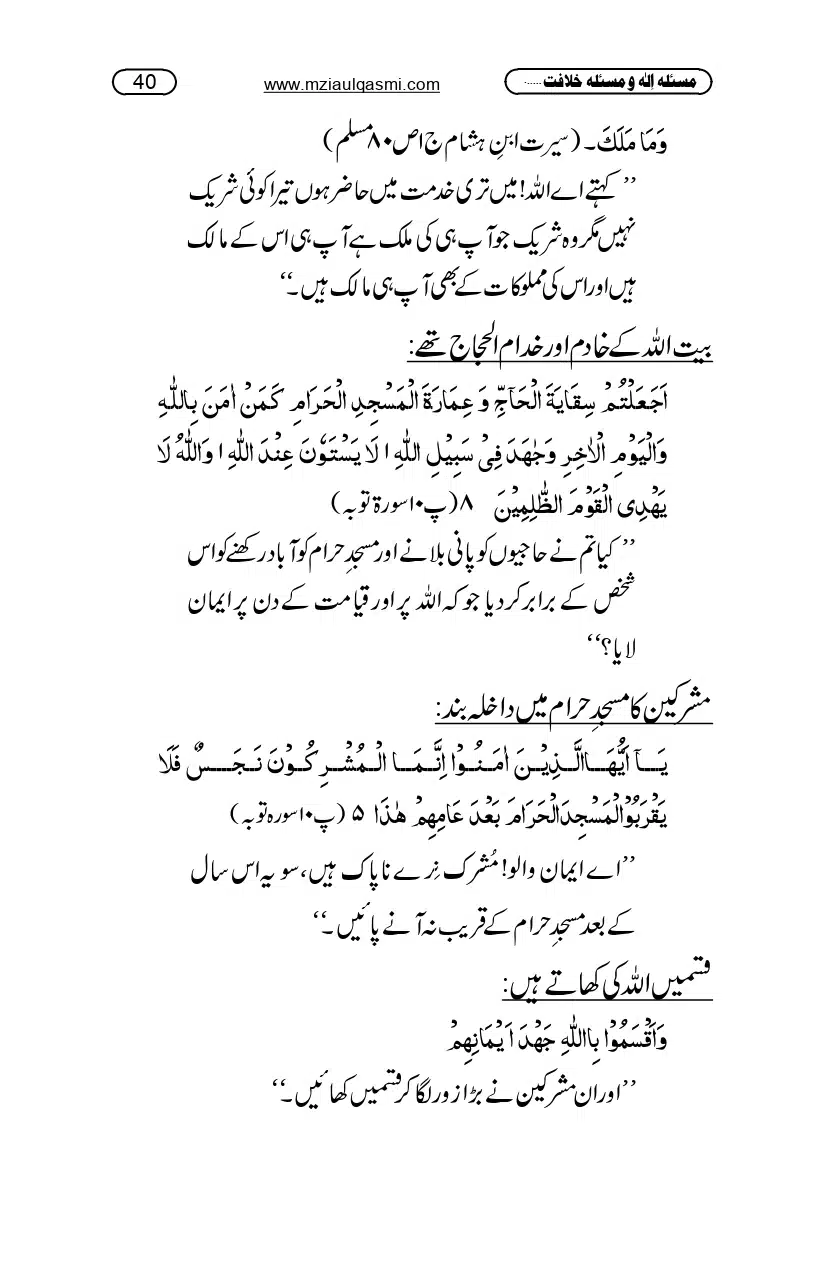 مسئلہ اِلٰہ و مسئلہ خلافت...... www.mziaulqasmi.com 40
وَمَا مَلَكَ۔ (سیرت ابنِ ہشام ج ا ص ۸۰ مسلم)
’’ کہتے اے اللہ! میں تری خدمت میں حاضر ہوں تیرا کوئی شریک
نہیں مگر وہ شریک جو آپ ہی کی ملک ہے آپ ہی اس کے مالک
ہیں اور اس کی مملوکات کے بھی آپ ہی مالک ہیں۔‘‘
بیت اللہ کے خادم اور خدام الحجاج تھے:
اَجَعَلْتُمْ سِقَايَةَ الْحَآجِّ وَ عِمَارَةَ الْمَسْجِدِ الْحَرَامِ كَمَنْ اٰمَنَ بِاللّٰهِ
وَالْيَوْمِ الْاٰخِرِ وَجٰهَدَ فِىْ سَبِيْلِ اللّٰهِ ا لَا يَسْتَوٗنَ عِنْدَ اللّٰهِ ا وَاللّٰهُ لَا
يَهْدِى الْقَوْمَ الظّٰلِمِيْنَ ۸ (پ۱۰ سورۃ توبہ)
’’ کیا تم نے حاجیوں کو پانی پلانے اور مسجدِ حرام کو آباد رکھنے کو اس
شخص کے برابر کر دیا جو کہ اللہ پر اور قیامت کے دن پر ایمان
لایا؟‘‘
مشرکین کا مسجدِ حرام میں داخلہ بند:
يَـآ اَيُّهَـا الَّـذِيْـنَ اٰمَـنُـوْا اِنَّـمَـا الْـمُشْـرِكُـوْنَ نَـجَـسٌ فَلَا
يَقْرَبُوْالْمَسْجِدَالْحَرَامَ بَعْدَ عَامِهِمْ هٰذَا ۵ (پ۱۰ سورہ توبہ)
’’اے ایمان والو! مُشرک نِرے ناپاک ہیں، سو یہ اس سال
کے بعد مسجدِ حرام کے قریب نہ آنے پائیں۔‘‘
قسمیں اللہ کی کھاتے ہیں:
وَاَقْسَمُوْا بِااللّٰهِ جَهْدَ اَيْمَانِهِمْ
’’اور ان مشرکین نے بڑا زور لگا کر قسمیں کھائیں۔‘‘